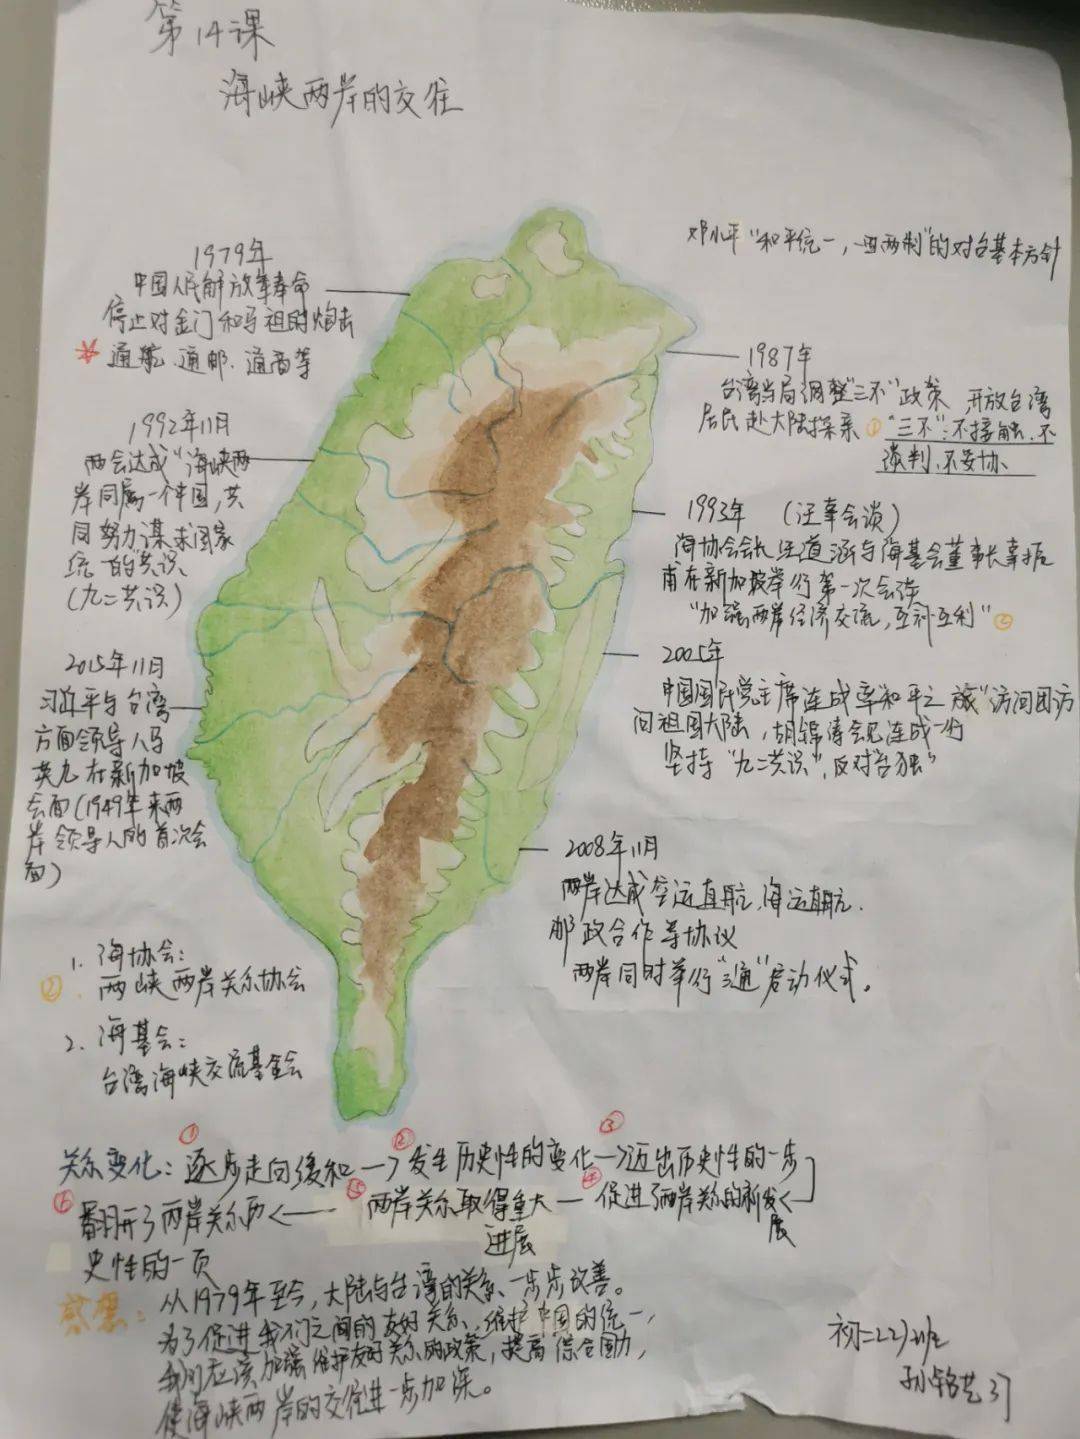 第14课
海峡两岸的交往
邓小平“和平统一，一国两制”的对台基本方针
1979年
中国人民解放军奉命
停止对金门和马祖的炮击
通航、通邮、通商等
1987年
台湾当局调整“三不”政策，开放台湾
居民赴大陆探亲 ①“三不”：不接触、不
谈判、不妥协
1992年11月
两会达成“海峡两
岸同属一个中国，共
同努力谋求国家
统一”的共识
(九二共识)
1993年 (汪辜会谈)
海协会会长汪道涵与海基会董事长辜振
甫在新加坡举行第一次会谈
“加强两岸经济交流，互补互利” ②
2005年
中国国民党主席连战率“和平之旅”访问团访
问祖国大陆，胡锦涛会见连战一行
坚持“九二共识”，反对“台独”
2015年11月
习近平与台湾
方面领导人马
英九在新加坡
会面(1949年来两
岸领导人的首次会
面)
2008年11月
两岸达成空运直航，海运直航，
邮政合作等协议
两岸同时举行“三通”启动仪式。
② 1. 海协会：
两峡两岸关系协会
2. 海基会：
台湾海峡交流基金会
关系变化：①逐步走向缓和→②发生历史性的变化→③迈出历史性的一步
⑥翻开了两岸关系历←⑤两岸关系取得重大—④促进了两岸关系的新发
展
进展
史性的一页
感想：从1979年至今，大陆与台湾的关系一步步改善。
为了促进我们之间的友好关系，维护中国的统一，
我们应该加强维护友好关系的政策，提高综合国力，
使海峡两岸的交往进一步加深。
初二(2)班
孙铭艺 37